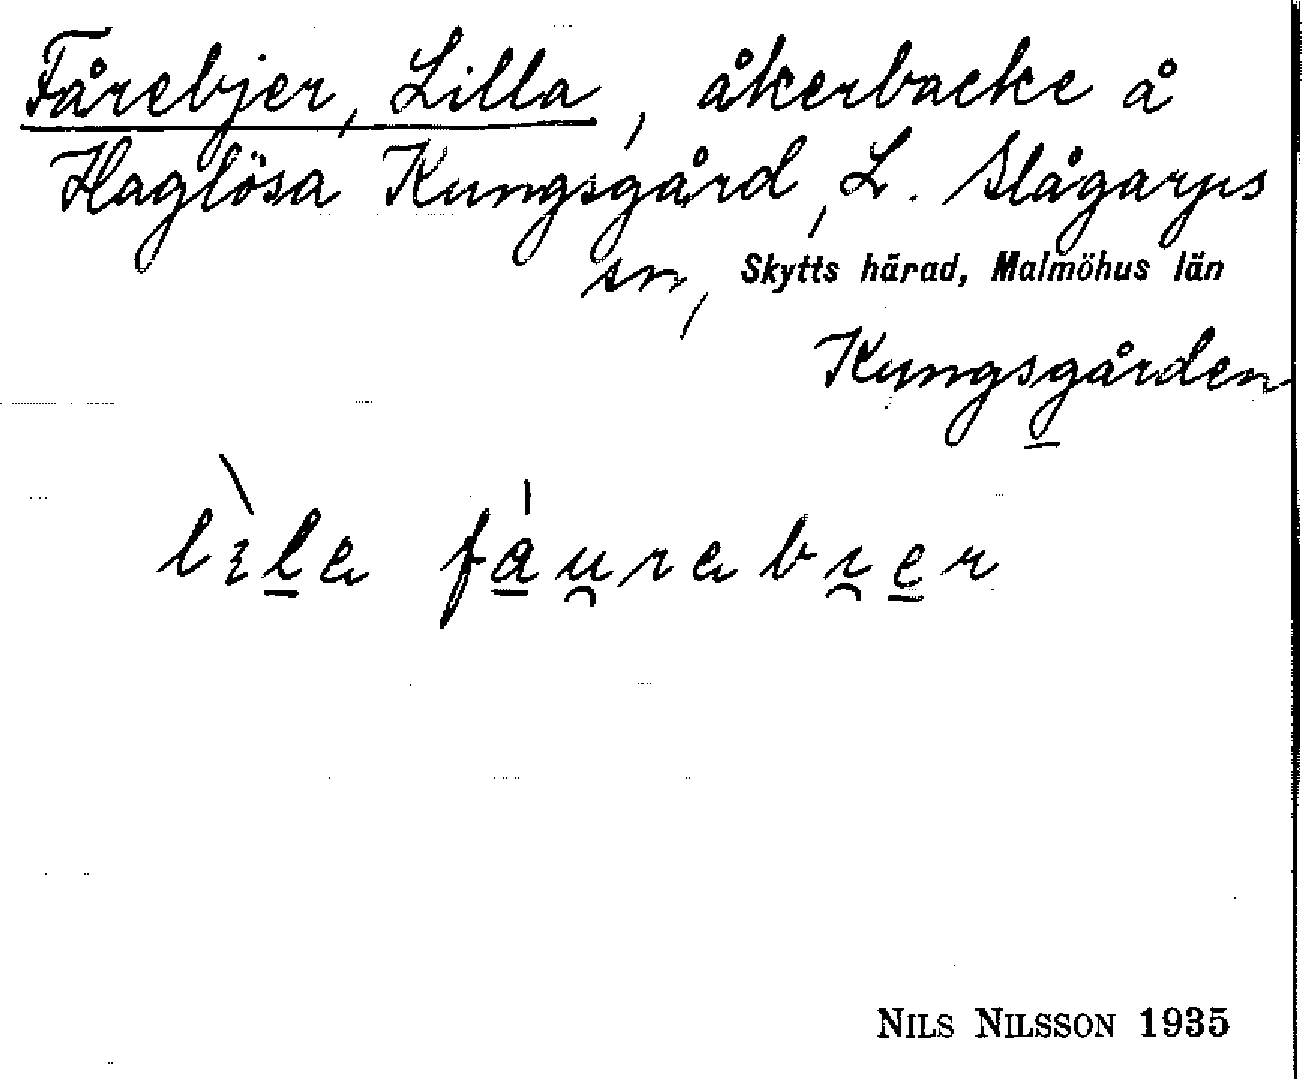 Fårebjer, Lilla, åkerbacke å
Haglösa Kungsgård, L. Slågarps
sn, Skytts härad, Malmöhus län
Kungsgården
lila faurabier
NILS NILSSON 1935